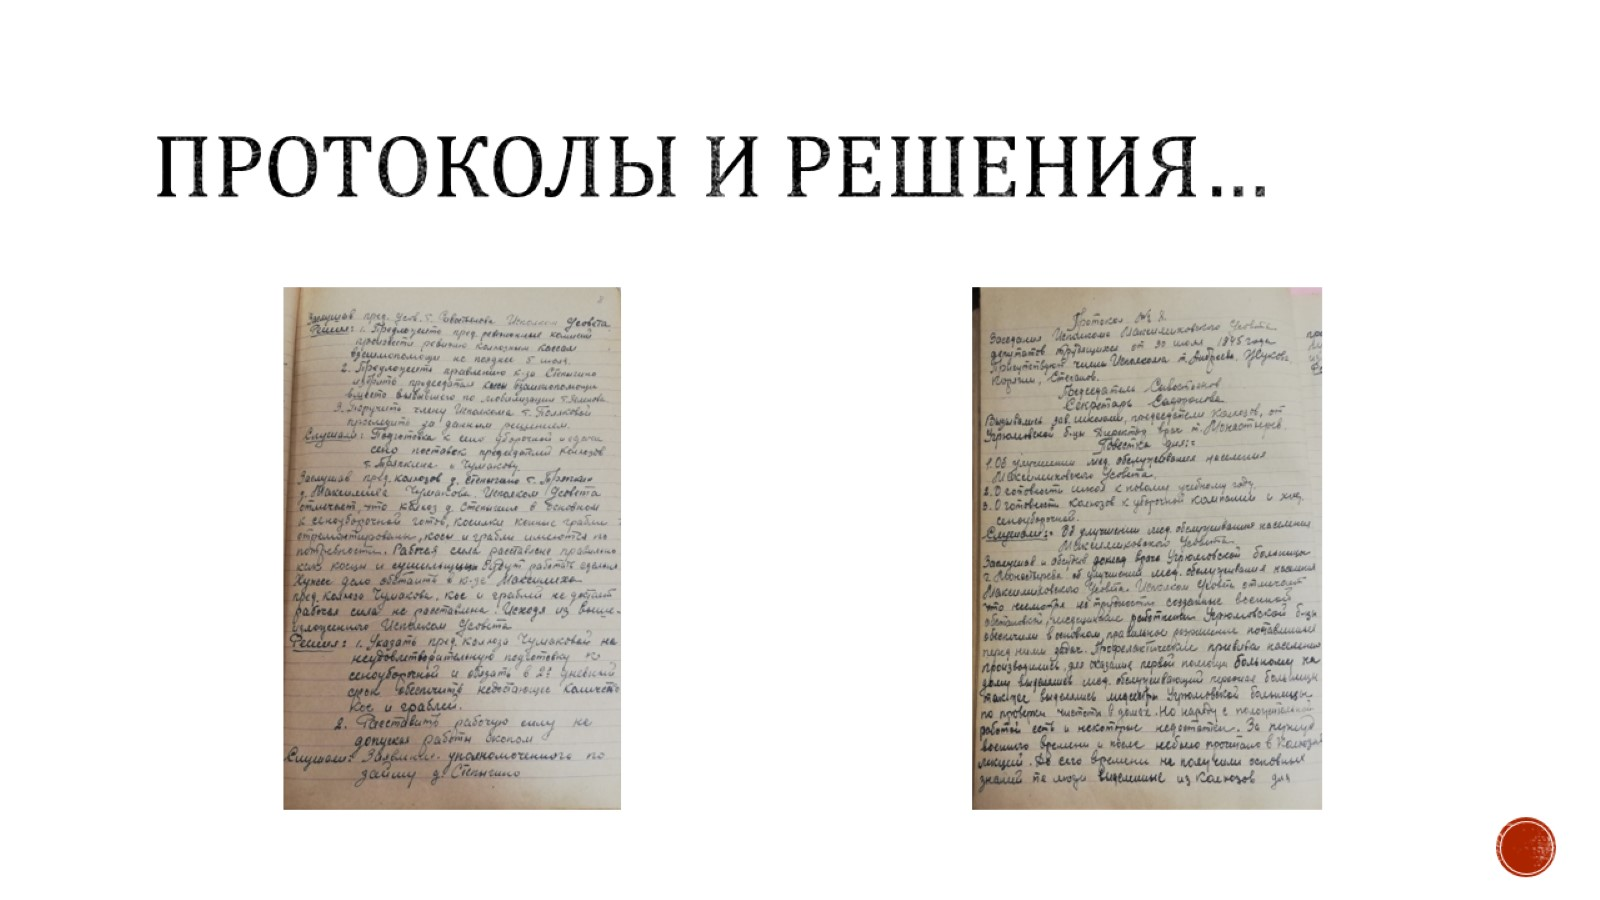 ПРОТОКОЛЫ И РЕШЕНИЯ...
2
Заслушав пред. Исполком Усовета
Решил: 1. Предложить пред. ревизионные комиссии
произвести ревизию колхозным кассам
взаимопомощи не позднее 5 июля.
2. Предложить правлению к-за Степыгино
избрать председателя кассы взаимопомощи
вместо выбывшего по мобилизации
3. Поручить члену Исполкома т. Поляковой
проследить за данным решением.
Слушали: Подготовка к сено уборочной и сдачи
сено поставок председателей колхозов
т. Пряхкина и Чумакову.
Заслушав пред. колхозов д. Степыгино т.
д. Максимиха Чумакова. Исполком Усовета
отмечает, что колхоз д. Степыгино в основном
к сеноуборочной готов, косилки конные грабли
отремонтированы, косы и грабли имеются по
потребности. Рабочая сила расставлена правильно
косцы и будут работать
Хуже дело обстоит в к-зе Максимиха
пред. колхоза Чумакова. Кос и граблей не достает
рабочая сила не расставлена. Исходя из выше-
изложенного Исполком Усовета
Решил: 1. Указать пред. колхоза Чумаковой на
неудовлетворительную подготовку к
сеноуборочной и обязать в 2х дневный
срок обеспечить недостающее количество
кос и граблей.
2. Расставить рабочую силу не
допуская работы скопом
Слушали: Заявление уполномоченного по
займу д. Степыгино
Протокол №
Заседания Исполкома Максимиховского Усовета
депутатов трудящихся от 30 июля 1945 года
Присутствуют члены Исполкома т. Андреева, Звукова
Корягин, Степанов.
Председатель Савостьянов
Секретарь Сафронова
Вызывались зав. школами, председатели колхозов, от
Угрюмовской б-цы Директор врач т. Монастырев.
Повестка дня:
1. Об улучшении мед. обслуживания населения
Максимиховского Усовета.
2. О готовности школ к новому учебному году.
3. О готовности колхозов к уборочной кампании и ход
сеноуборочной.
Слушали: Об улучшении мед. обслуживания населения
Максимиховского Усовета.
Заслушав и обсудив доклад врача Угрюмовской больницы
т. Монастырева об улучшении мед. обслуживания населения
Максимиховского Усовета. Исполком Усовета отмечает
что несмотря на трудности созданные военной
обстановкой, медицинские работники Угрюмовской б-цы
обеспечили в основном правильное разрешение поставленных
перед ними задач. Профелактические прививки населению
производились, для оказания первой помощи больному на
дому выделялся мед. обслуживающий персонал больницы
также выделялись медсестры Угрюмовской больницы
по проверки чистоты в домах. Но наряду с положительной
работой есть и некоторые недостатки. За период
военного времени и после небыло прочитано в колхозах
лекций. До сего времени не получили основных
знаний те люди выделенные из колхозов для